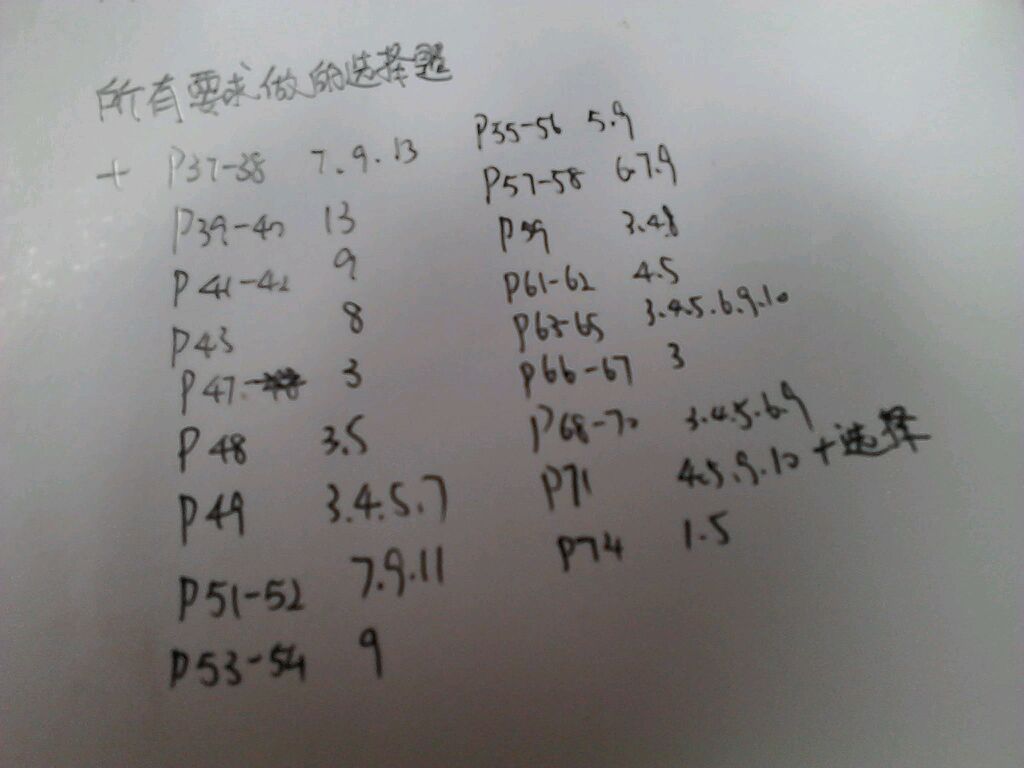 所有要求做的选择题
+ P37-38 7.9.13
P39-40 13
P41-42 9
P43 8
P47 3
P48 3.5
P49 3.4.5.7
P51-52 7.9.11
P53-54 9
P35-56 5.9
P57-58 6.7.9
P59 3.4.8
P61-62 4.5
P63-65 3.4.5.6.9.10
P66-67 3
P68-70 3.4.5.6.9
P71 4.5.9.10+选择
P74 1.5